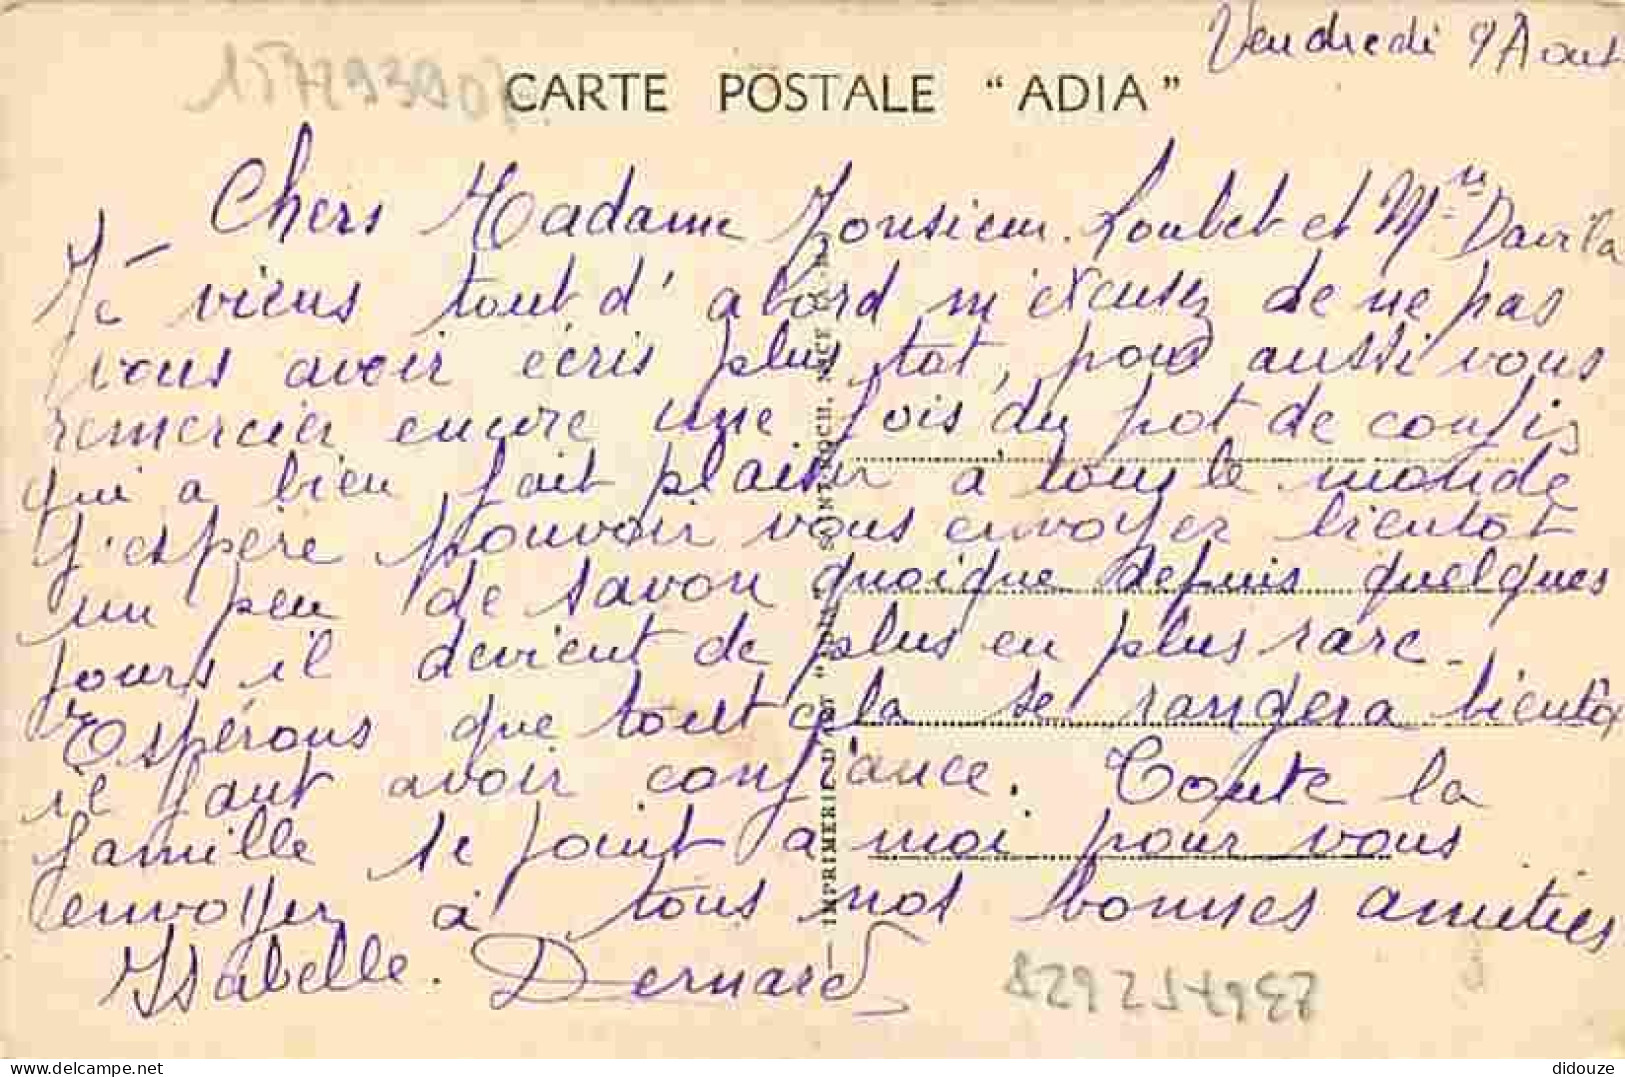 Vendredi 9 Aout
CARTE POSTALE "ADIA"
Chers Madame Monsieur Loubet et Mme Davila
Je viens tout d'abord m'excusez de ne pas
vous avoir écris plus tot, pour aussi vous
remercier encore une fois du pot de confis
qui a bien fait plaisir à tous le monde
J'espère pouvoir vous envoyer bientôt
un peu de savon quoique depuis quelques
jours il devient de plus en plus rare.
Espérons que tout cela se rangera bientôt
il faut avoir confiance. Toute la
famille se joint a moi pour vous
envoyer à tous nos bonnes amitiés
Isabelle. Dernard
didouze